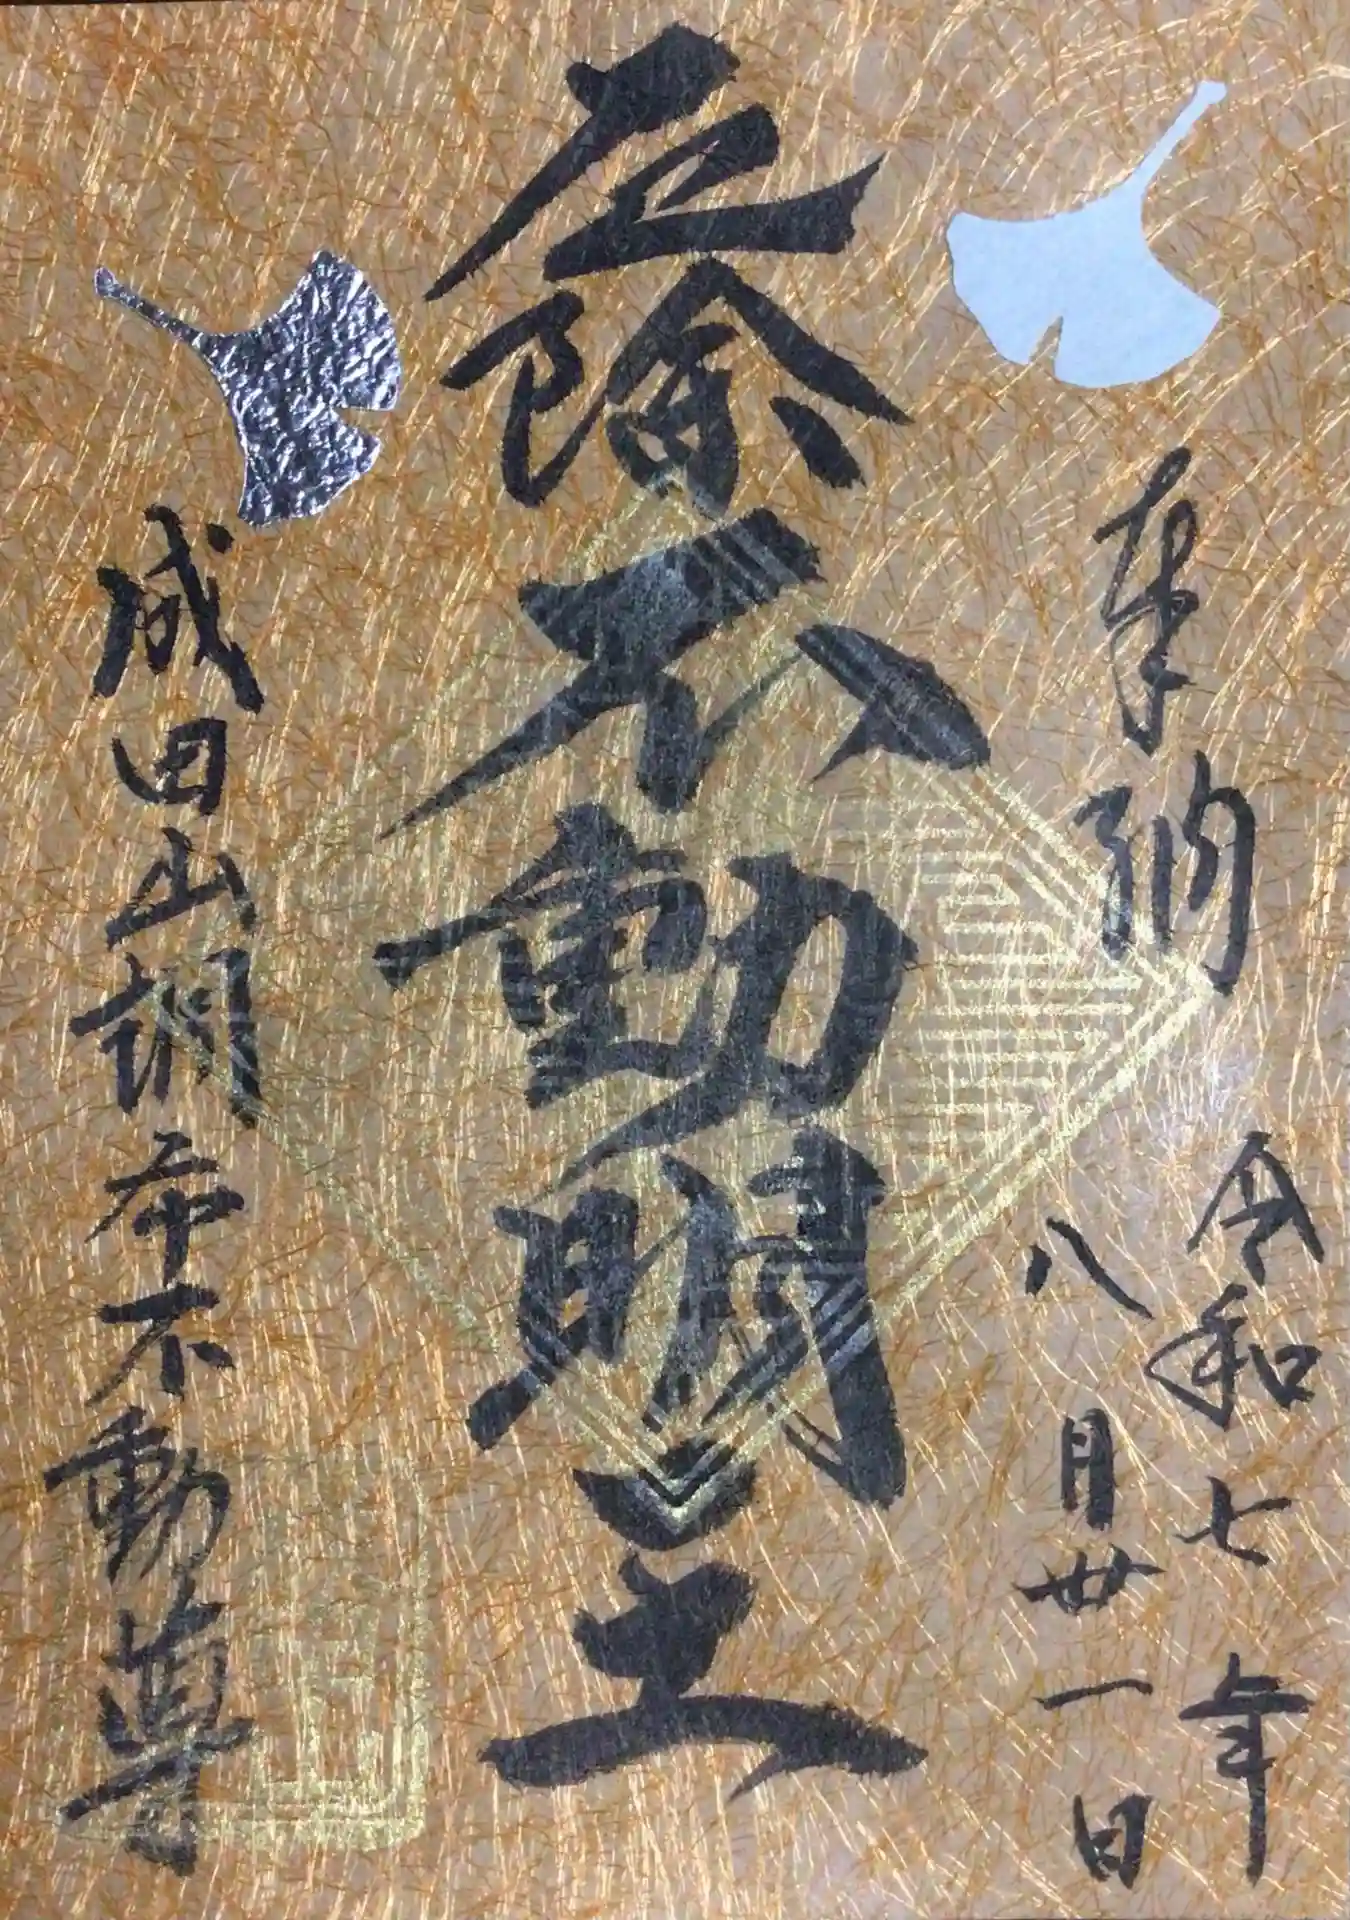 奉納
令和七年
八月廿一日
厄除不動明王
成田山調布不動尊